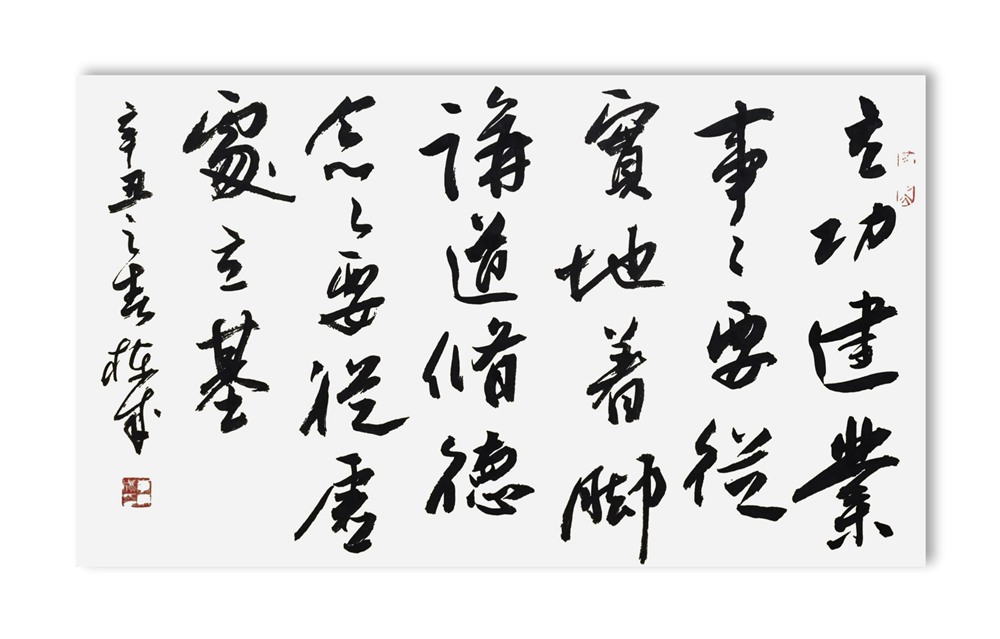 立功建業
事〻要從
實地着脚
講道脩德
念〻要從虛
處立基
辛丑之春 栋成